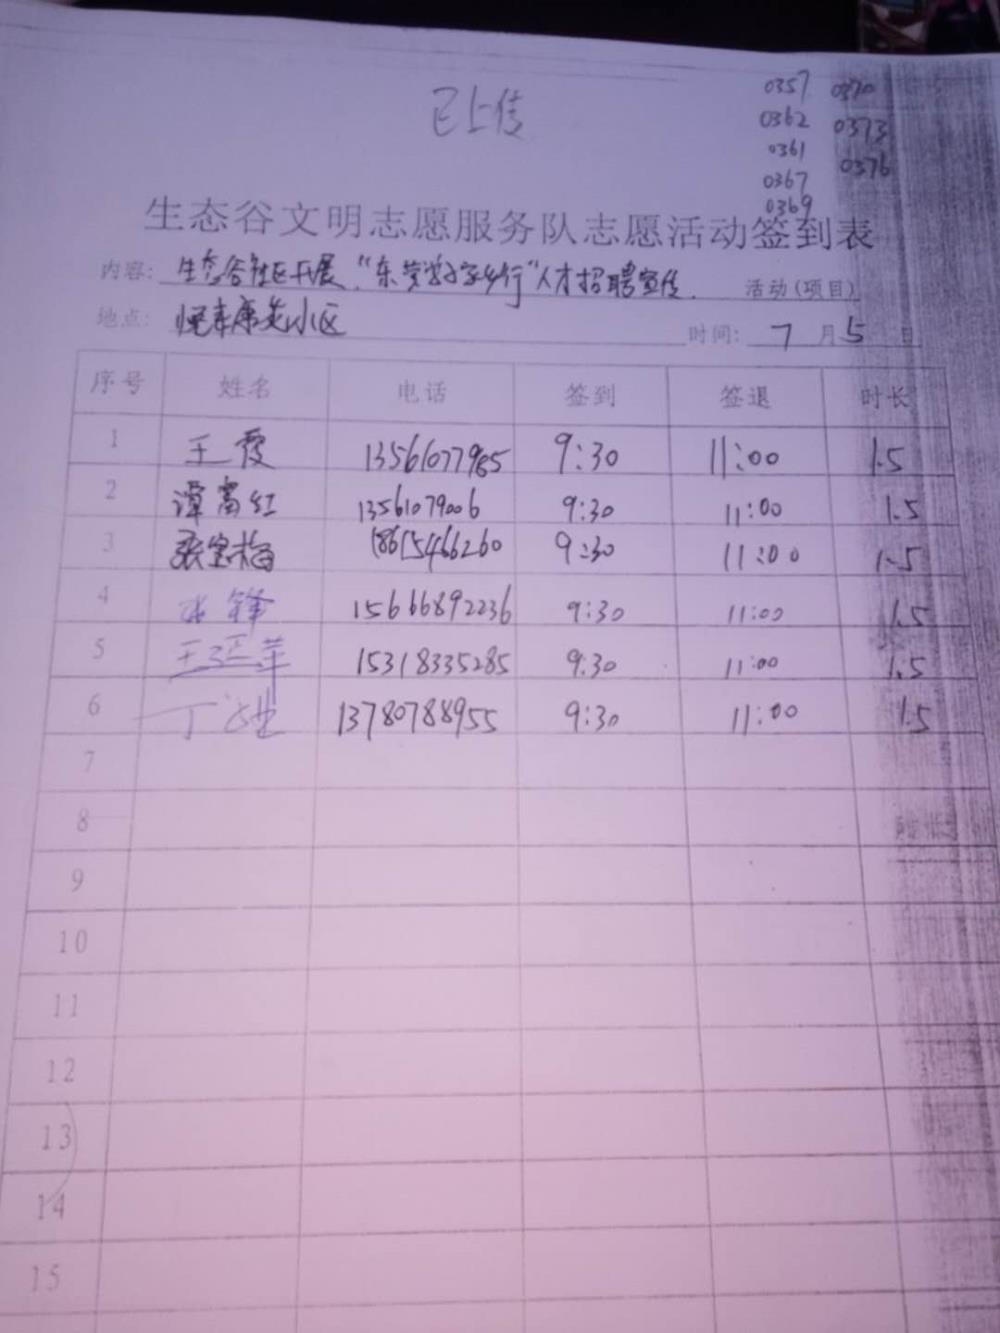 已上传
0357 0370
0362 0373
0361
0367 0376
0369
生态谷文明志愿服务队志愿活动签到表
内容：生态谷社区开展“东营数字乡行”人才招聘宣传 活动（项目）
地点：悦来康苑小区 时间：7月5日
序号 姓名 电话 签到 签退 时长
1 王霞 13561077985 9:30 11:00 1.5
2 谭富红 13561079006 9:30 11:00 1.5
3 张宝梅 18615466260 9:30 11:00 1.5
4 锋 15666892236 9:30 11:00 1.5
5 王 苹 15318335285 9:30 11:00 1.5
6 丁 13780788955 9:30 11:00 1.5
7
8
9
10
11
12
13
14
15